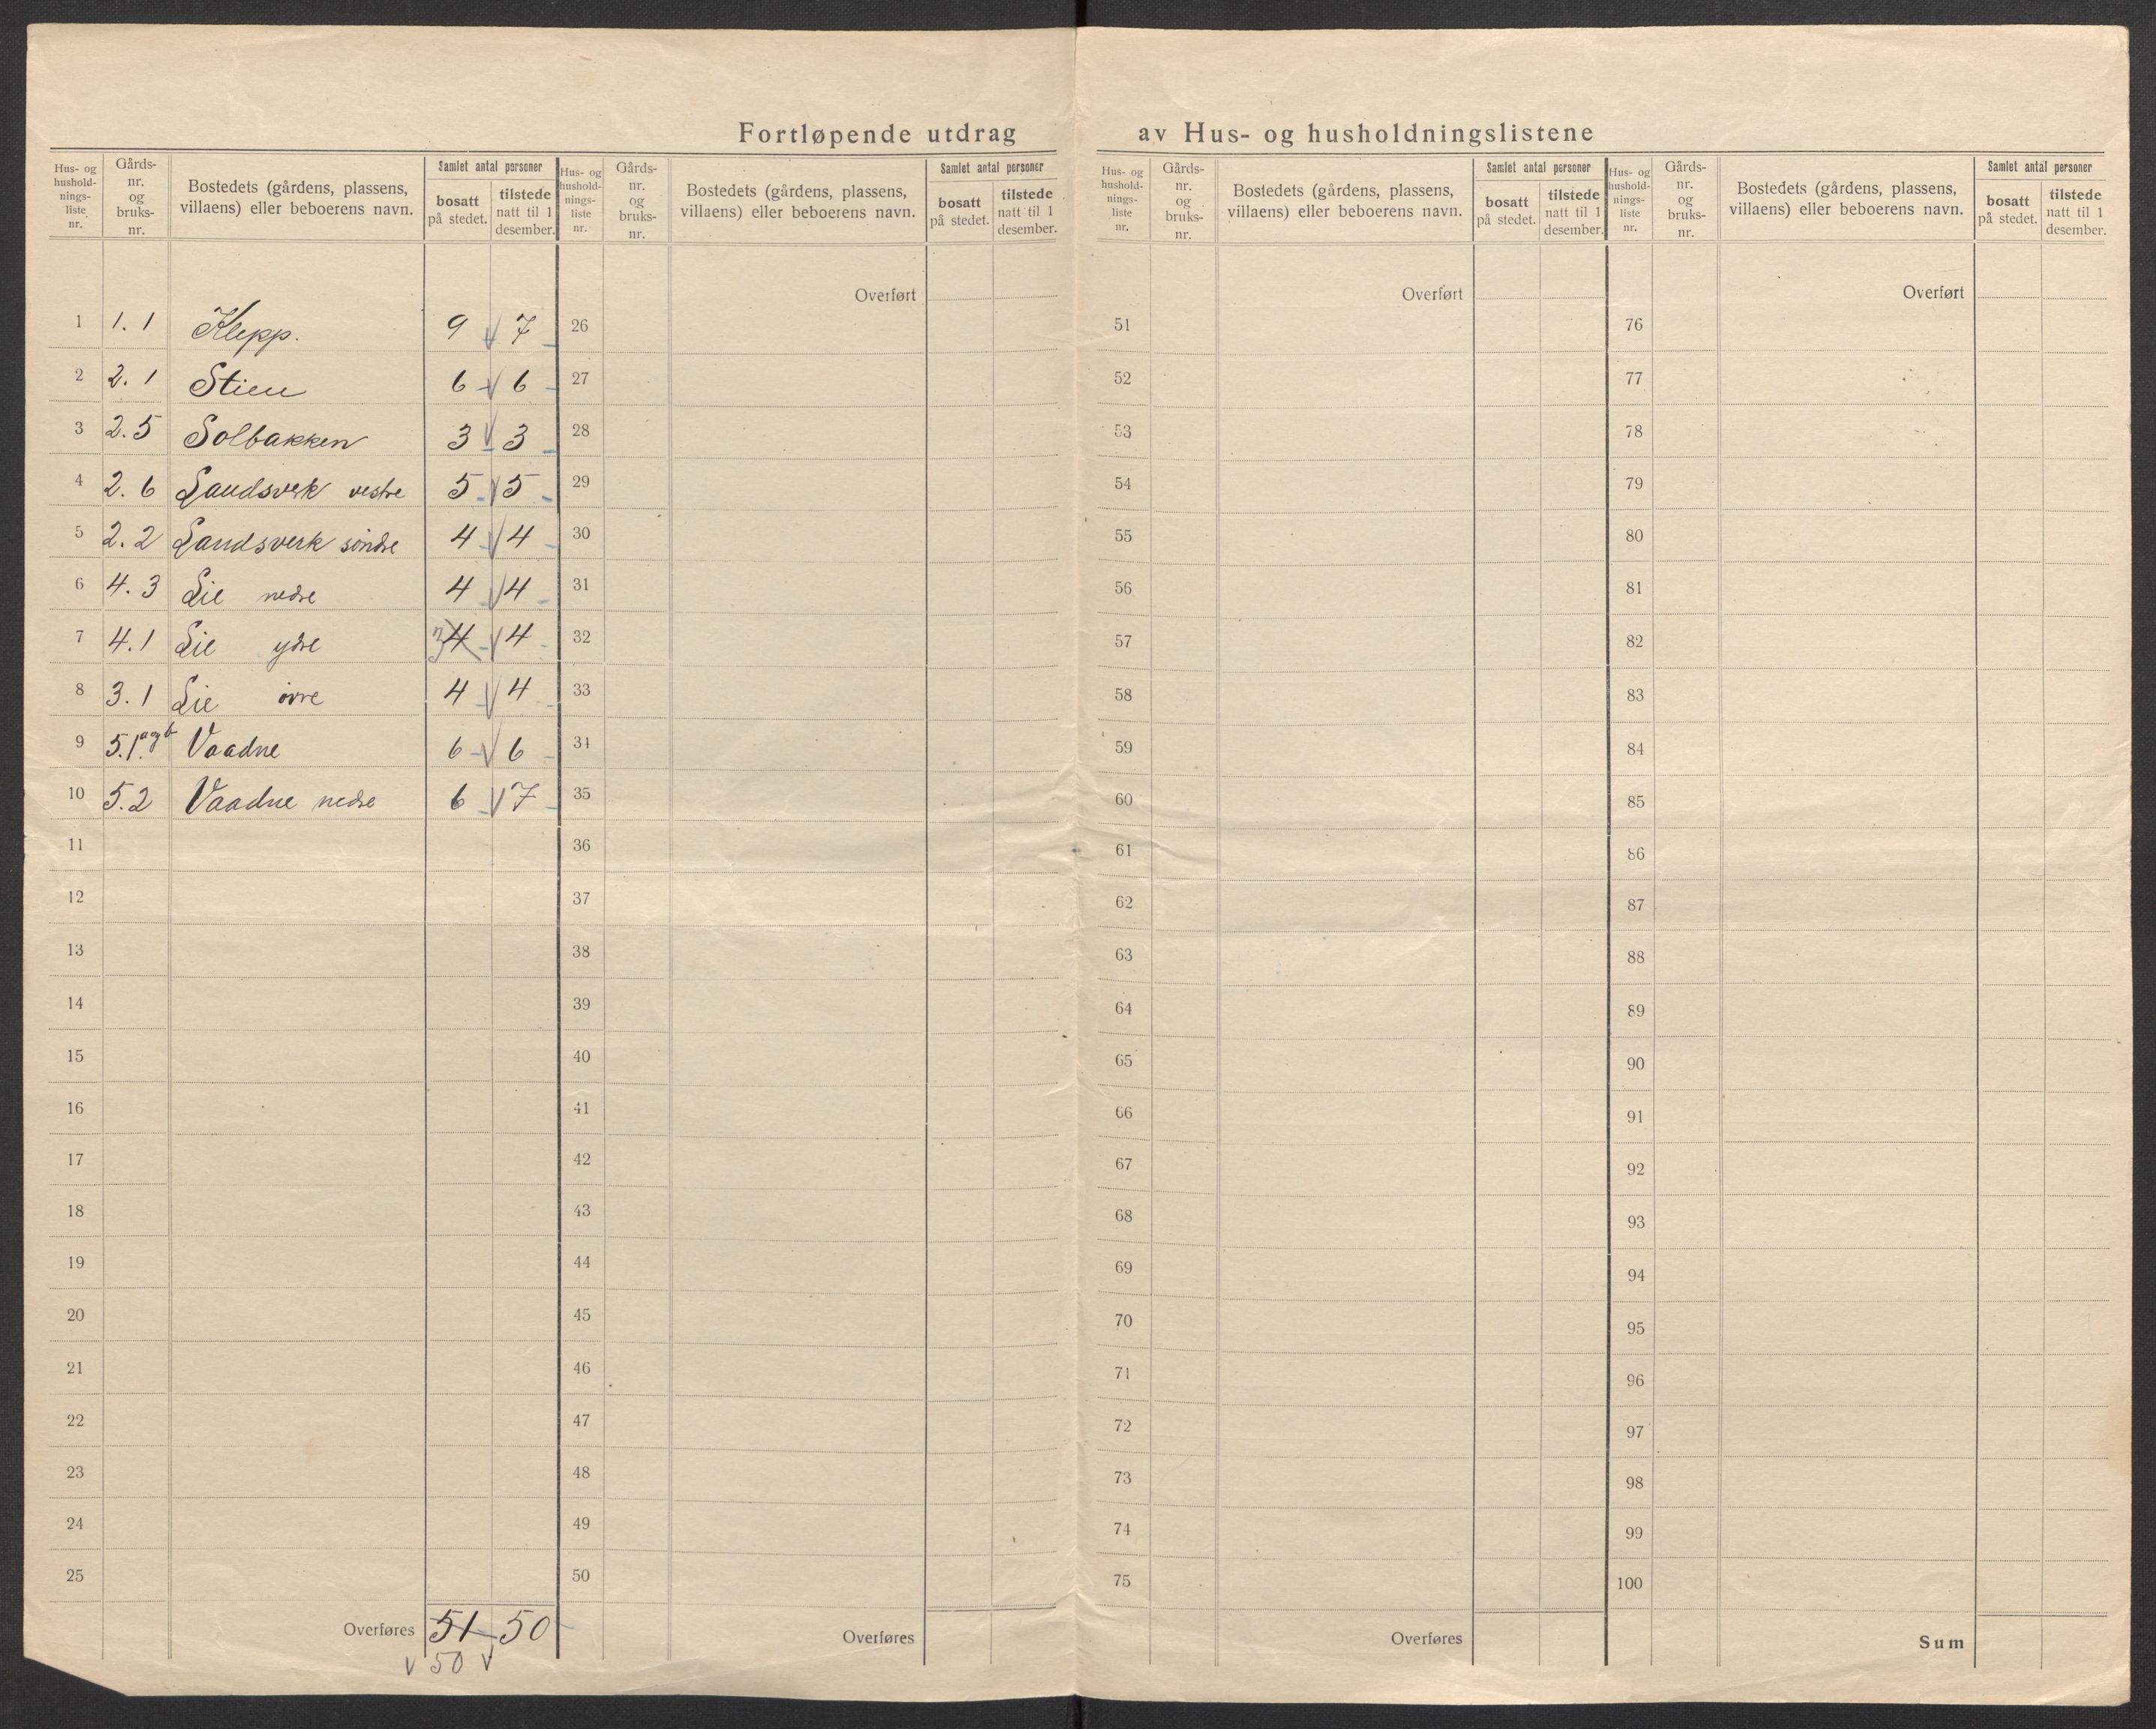 Fortløpende utdrag av Hus- og husholdningslistene
Hus- og husholdnings-liste nr. | Gårds-nr. og bruks-nr. | Bostedets (gårdens, plassens, villaens) eller beboerens navn. | Samlet antal personer bosatt på stedet. | tilstede natt til 1 desember.
Hus- og husholdnings-liste nr. | Gårds-nr. og bruks-nr. | Bostedets (gårdens, plassens, villaens) eller beboerens navn. | Samlet antal personer bosatt på stedet. | tilstede natt til 1 desember.
Hus- og husholdnings-liste nr. | Gårds-nr. og bruks-nr. | Bostedets (gårdens, plassens, villaens) eller beboerens navn. | Samlet antal personer bosatt på stedet. | tilstede natt til 1 desember.
Hus- og husholdnings-liste nr. | Gårds-nr. og bruks-nr. | Bostedets (gårdens, plassens, villaens) eller beboerens navn. | Samlet antal personer bosatt på stedet. | tilstede natt til 1 desember.
Overført Overført Overført
1 1.1 Klepp. 9 7 26 51 76
2 2.1 Stien 6 6 27 52 77
3 2.5 Solbakken 3 3 28 53 78
4 2.6 Landsverk vestre 5 5 29 54 79
5 2.2 Landsverk söndre 4 4 30 55 80
6 4.3 Lie nedre 4 4 31 56 81
7 4.1 Lie ydre 3 4 4 32 57 82
8 3.1 Lie övre 4 4 33 58 83
9 5.1 a og b Vaadne 6 6 34 59 84
10 5.2 Vaadne nedre 6 7 35 60 85
11 36 61 86
12 37 62 87
13 38 63 88
14 39 64 89
15 40 65 90
16 41 66 91
17 42 67 92
18 43 68 93
19 44 69 94
20 45 70 95
21 46 71 96
22 47 72 97
23 48 73 98
24 49 74 99
25 50 75 100
Overføres 51 50 Overføres Overføres Sum
50